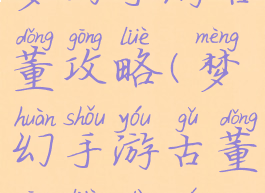 dǒng gōng lüè mèng
董攻略(梦
huàn shǒu yóu gǔ dǒng
幻手游古董